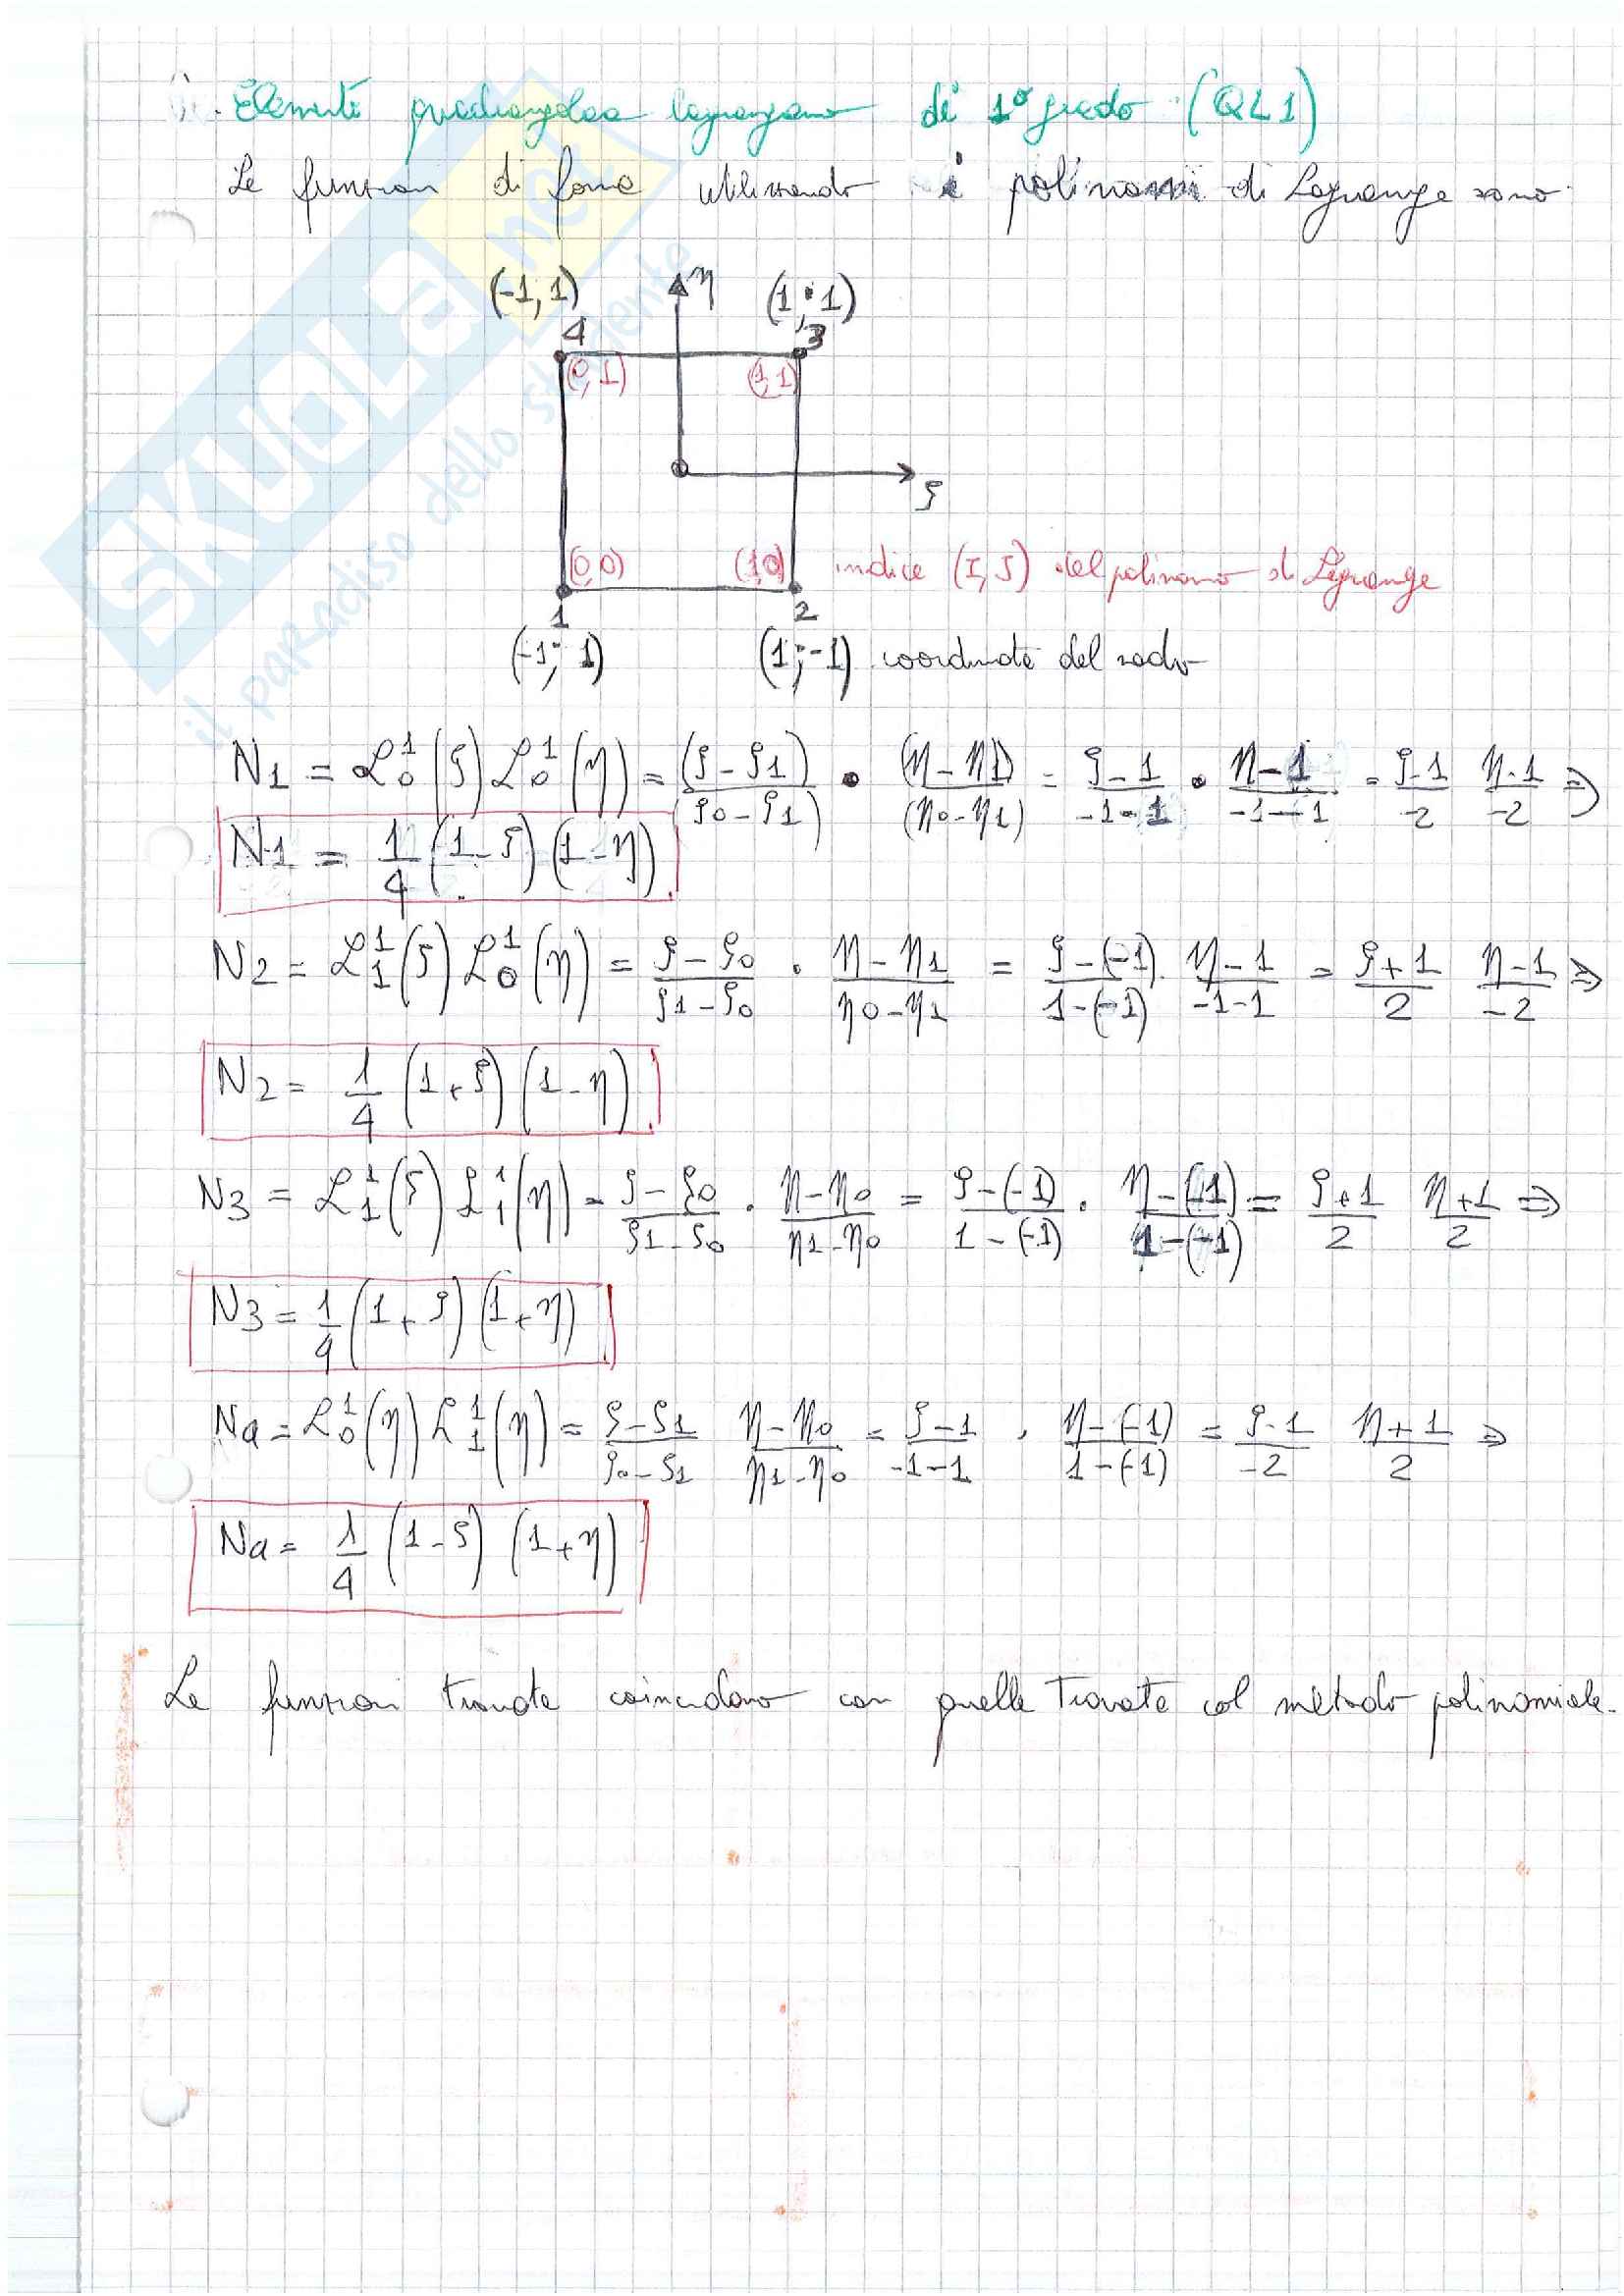 Elemento quadrangolare lagrangiano di 1° grado (QL1)
Le funzioni di forma utilizzando i polinomi di Lagrange sono
(-1,1) η (1;1)
4 3
(0,1) (1,1)
ξ
(0,0) (1,0) indice (I,J) del polinomio di Lagrange
1 2
(-1; 1) (1;-1) coordinate del nodo
N1 = L_0^1(ξ) L_0^1(η) = (ξ-ξ1)/(ξ0-ξ1) • (η-η1)/(η0-η1) = (ξ-1)/(-1-1) • (η-1)/(-1-1) = (ξ-1)/-2 (η-1)/-2 ⇒
N1 = 1/4 (1-ξ)(1-η)
N2 = L_1^1(ξ) L_0^1(η) = (ξ-ξ0)/(ξ1-ξ0) · (η-η1)/(η0-η1) = (ξ-(-1))/(1-(-1)) · (η-1)/(-1-1) = (ξ+1)/2 (η-1)/-2 ⇒
N2 = 1/4 (1+ξ)(1-η)
N3 = L_1^1(ξ) L_1^1(η) = (ξ-ξ0)/(ξ1-ξ0) · (η-η0)/(η1-η0) = (ξ-(-1))/(1-(-1)) · (η-(-1))/(1-(-1)) = (ξ+1)/2 (η+1)/2 ⇒
N3 = 1/4 (1+ξ)(1+η)
N4 = L_0^1(η) L_1^1(η) = (ξ-ξ1)/(ξ0-ξ1) (η-η0)/(η1-η0) = (ξ-1)/(-1-1) · (η-(-1))/(1-(-1)) = (ξ-1)/-2 (η+1)/2 ⇒
N4 = 1/4 (1-ξ)(1+η)
Le funzioni trovate coincidono con quelle trovate col metodo polinomiale.
SKUOLA.net
il paradiso dello studente